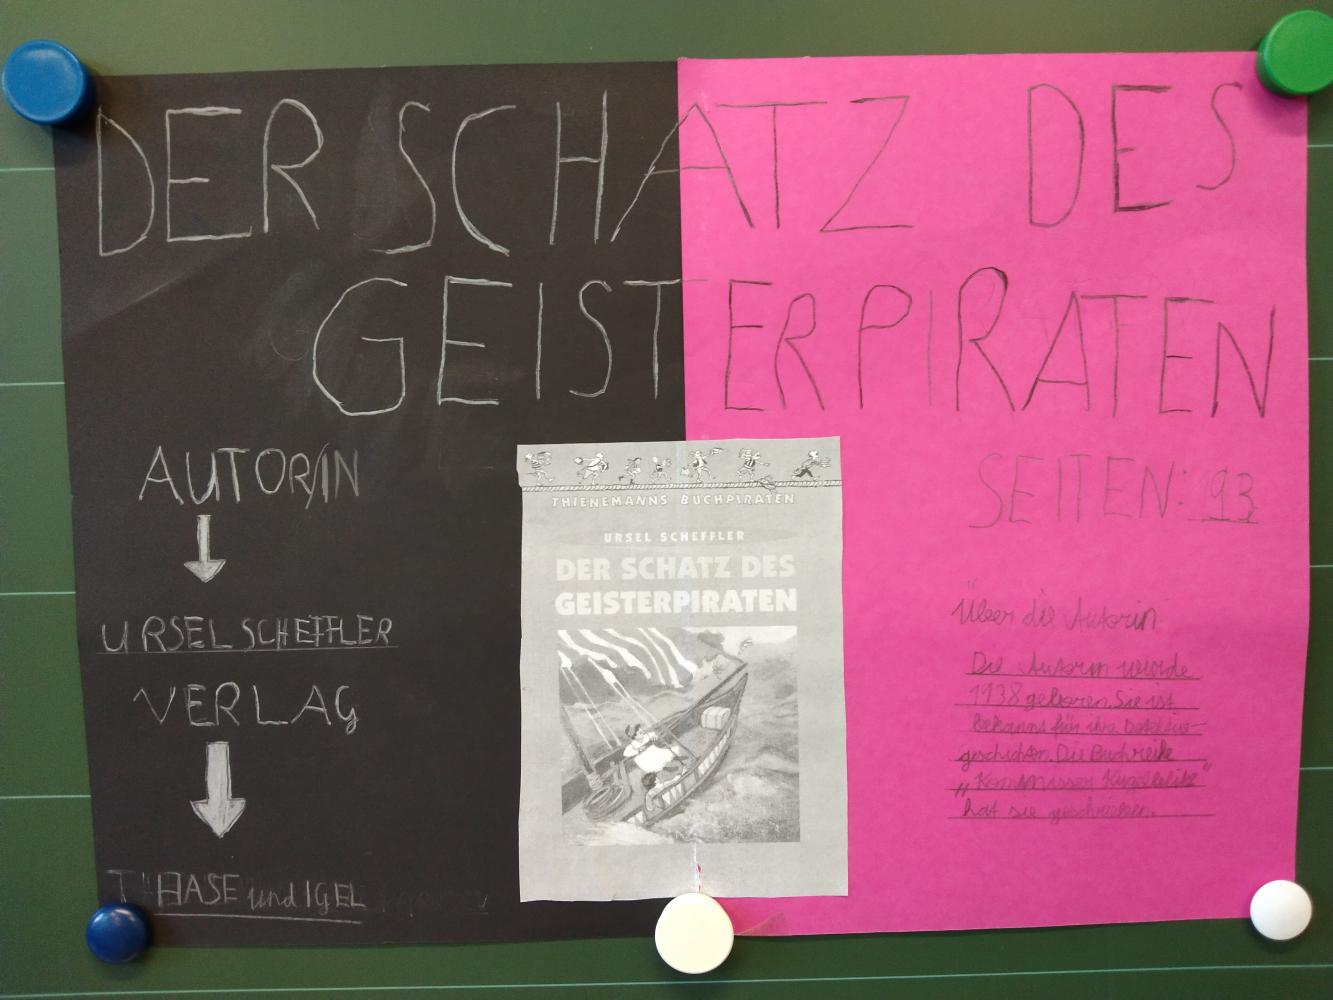 DER SCHATZ DES
GEISTERPIRATEN
AUTORIN
URSEL SCHEFFLER
VERLAG
HASE und IGEL
THIENEMANNS BUCHPIRATEN
URSEL SCHEFFLER
DER SCHATZ DES
GEISTERPIRATEN
SEITEN: 93
Über die Autorin
Die Autorin wurde
1938 geboren. Sie ist
bekannt für ihre Detektiv-
geschichten. Die Buchreihe
„Kommissar Kugelblitz"
hat sie geschrieben.